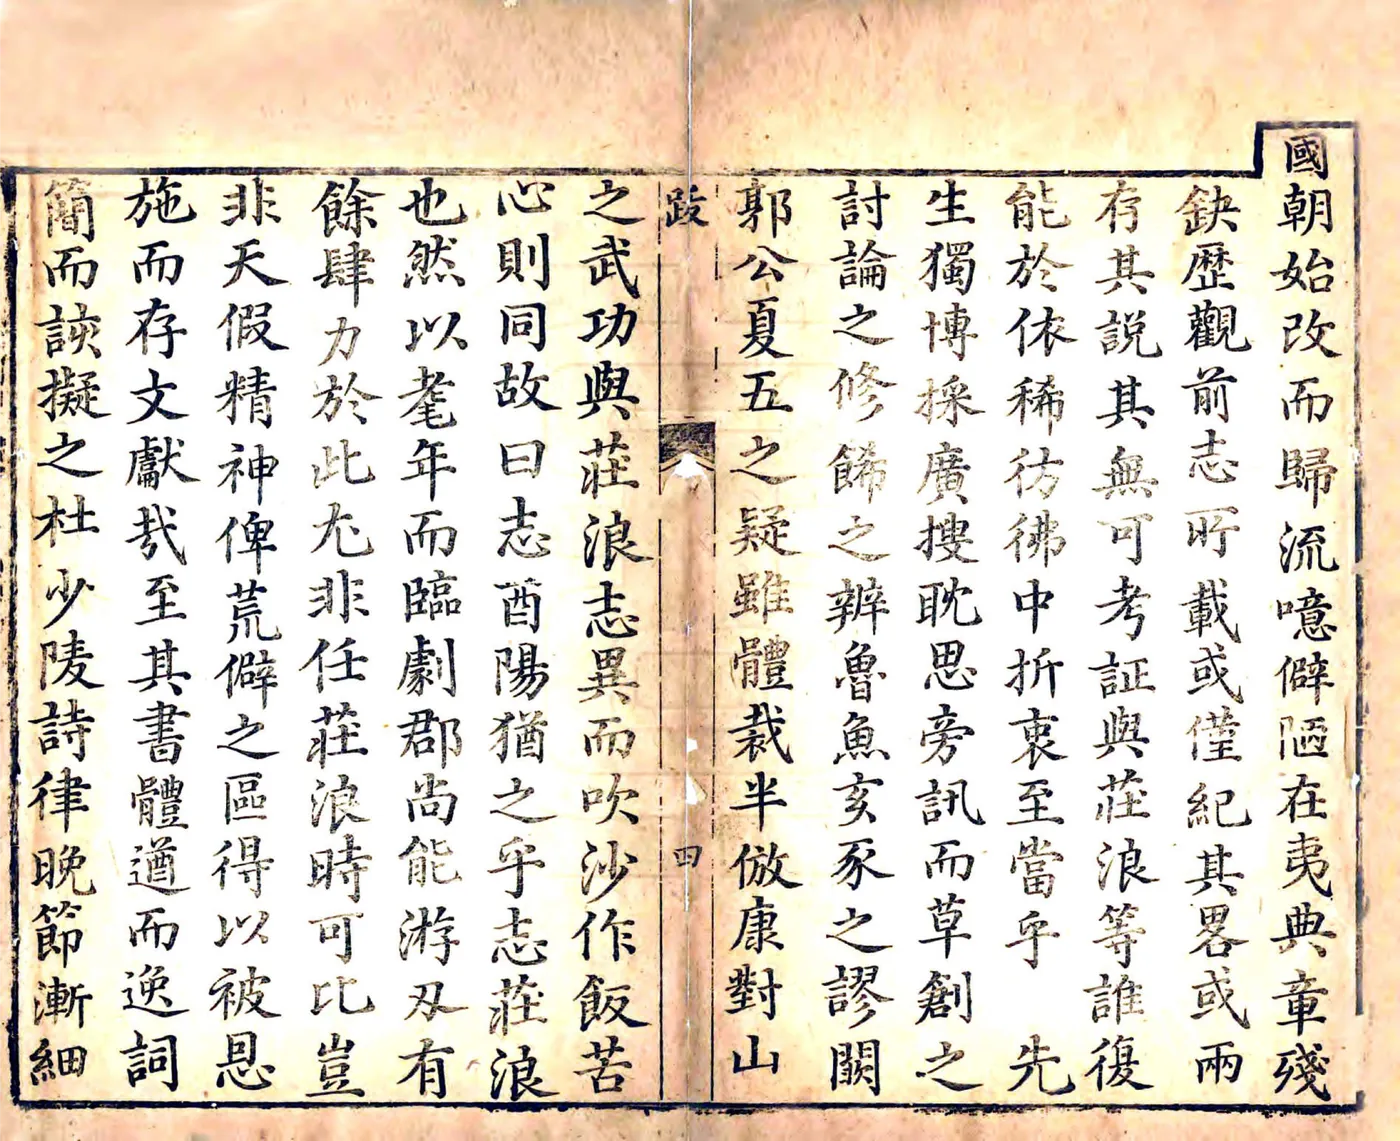 國朝始改而歸流噫僻陋在夷典章殘
缺歷觀前志所載或僅紀其畧或兩
存其説其無可考証與莊浪等誰復
能於依稀彷彿中折衷至當乎　先
生獨博採廣搜耽思旁訊而草創之
討論之修餙之辧魯魚亥豕之謬闕
郭公夏五之疑雖體裁半倣康對山
跋
四
之武功與莊浪志異而吹沙作飯苦
心則同故曰志酉陽猶之乎志莊浪
也然以耄年而臨劇郡尚能游刄有
餘肆力於此尤非任莊浪時可比豈
非天假精神俾荒僻之區得以被恩
施而存文獻哉至其書體遒而逸詞
簡而該擬之杜少陵詩律晚節漸細